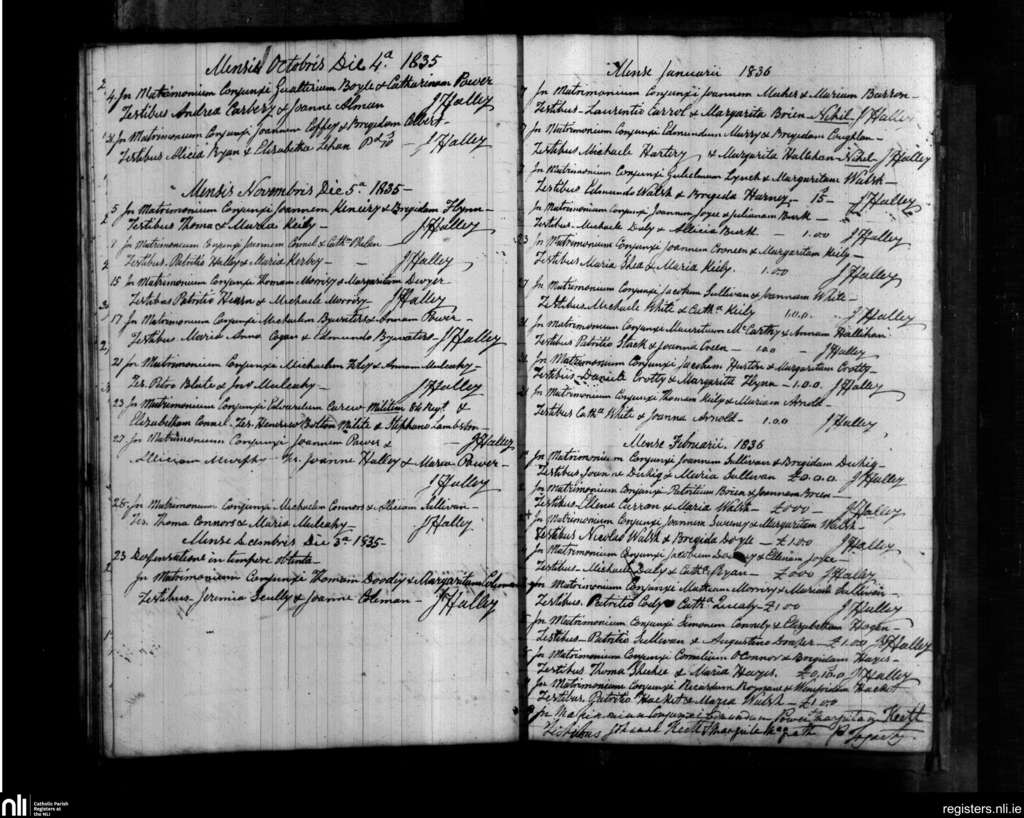 Mensis Octobris Die 4.ª 1835
4 In Matrimonium Conjunxi Gualterium Boyle & Catharinam Power
Testibus Andrea Carbery & Joanne Alman J Halley
In Matrimonium Conjunxi Joannem Coffey & Brigidam
Testibus Alicia Ryan & Elizabetha J Halley
Mensis Novembris Die 5.ª 1835
5 In Matrimonium Conjunxi Joannem & Brigidam Flynn
Testibus Thoma & Maria Keily J Halley
In Matrimonium Conjunxi Joannem Connel & Cathª Phelan
Testibus Patritio Halley & Maria Kerby J Halley
15 In Matrimonium Conjunxi Thomam Morrisy & Margaritam Dwyer
Testibus Patritio Hearn & Michaele Morrisy J Halley
17 In Matrimonium Conjunxi Michaelem Bywaters & Annam Power
Testibus Maria Anna Cogan & Edmundo Bywaters J Halley
21 In Matrimonium Conjunxi Michaelem Foley & Annam Mulcahy
Tes. Petro Blake & Mulcahy J Halley
23 In Matrimonium Conjunxi Edwardum Carew Militem Regt. &
Elizabetham Connel. Tes. Henrico Bolton Milite & Stephano Lambston
J Halley
27 In Matrimonium Conjunxi Joannem Power &
Aliciam Murphy Tes. Joanne Halley & Maria Power
J Halley
28 In Matrimonium Conjunxi Michaelem Connors & Aliciam Sullivan
Tes. Thoma Connors & Maria Mulcahy J Halley
Mense Decembris Die 3ª 1835
23 Dispensatione in tempore obtenta
In Matrimonium Conjunxi Thomam Doody & Margaritam Coleman
Testibus Jeremia Scully & Joanne Coleman J Halley
Mense Januarii 1836
In Matrimonium Conjunxi Joannem Maher & Mariam Barron
Testibus Laurentio Carrol & Margarita Brien Nihil J Halley
In Matrimonium Conjunxi Edmundum Murry & Brigidam Coughlan
Testibus Michaele Hartery & Margarita Hallahan Nihil J Halley
In Matrimonium Conjunxi Gulielmum Lynch & Margaritam Walsh
Testibus Edmundo Walsh & Brigida Harney 15 J Halley
In Matrimonium Conjunxi Joannem Joyce & Julianam Burk
Testibus Michaele Daly & Allicia Burk 1.00 J Halley
23 In Matrimonium Conjunxi Joannem Croneen & Margaritam Keily
Testibus Maria Shea & Maria Keily. 1.00 J Halley
In Matrimonium Conjunxi Jacobum Sullivan & Joannam White
Testibus Michaele White & Cathª Keily 1.00. J Halley
In Matrimonium Conjunxi Mauritium McCarthy & Annam Hallihan
Testibus Patritio Slack & Joanna Green 1.00 J Halley
In Matrimonium Conjunxi Jacobum Huston & Margaritam Crotty
Testibus Daniele Crotty & Margarita Flynn 1.00. J Halley
In Matrimonium Conjunxi Thomam Keily & Mariam Arnold
Testibus Cathª White & Joanna Arnold 1.00 J Halley
Mense Februarii. 1836
In Matrimonium Conjunxi Joannem Sullivan & Brigidam Duhig
Testibus Joanne Duhig & Maria Sullivan £0.0.0. J Halley
In Matrimonium Conjunxi Patritium Brien & Joannam Brien
Testibus Ellena Curran & Maria Walsh £000 J Halley
In Matrimonium Conjunxi Joannem Sweeny & Margaritam Walsh
Testibus Nicolao Walsh & Brigida Doyle £1.00 J Halley
In Matrimonium Conjunxi Jacobum & Ellenam Joyce
Testibus Michaele Daly & Cathª Ryan £000 J Halley
In Matrimonium Conjunxi Matheum Morrisy & Mariam Sullivan
Testibus Patritio Cody & Cathª £1.00 J Halley
In Matrimonium Conjunxi Simonem Connely & Elizabetham Hogan
Testibus Patritio Sullivan & Augustino £1.00 J Halley
In Matrimonium Conjunxi Cornelium O'Connor & Brigidam Hayes
Testibus Thoma Sheehee & Maria Hayes. £0.10.0 J Halley
In Matrimonium Conjunxi Ricardum & Winifridam Hacket
Testibus Patritio Hacket & Maria Walsh £1.00
In Matrimonium Conjunxi Power Keatt
Testibus Johanna Keatt & P Fogarty.
nli
Catholic Parish
Registers at
the NLI
registers.nli.ie